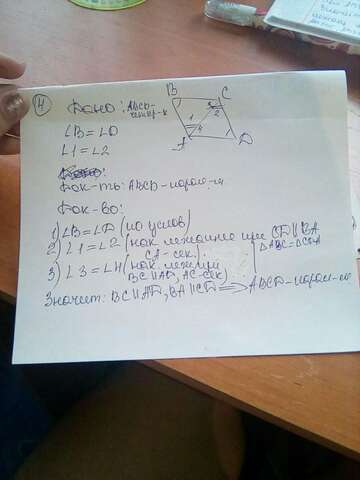 4
Дано: ABCD-
четыр-к
∠B = ∠D
∠1 = ∠2
Док-ть: ABCD-парал-м.
Док-во:
1) ∠B = ∠D (по услов)
2) ∠1 = ∠2 (нак. лежащие при CD || BA
CA - сек.)
ΔABC = ΔCDA
3) ∠3 = ∠4 (нак. леж при
BC || AD, AC - сек)
Значит: BC || AD, BA || CD ⟹ ABCD - парал-м
B
C
3
2
1
4
A
D